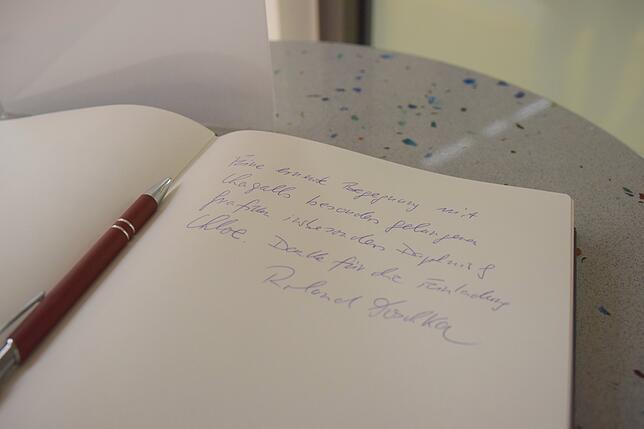 Eine erneute Begegnung mit
Chagalls besonders gelungenen
Grafiken insbesondere Daphnis &
Chloe. Danke für die Einladung
Roland Doschka